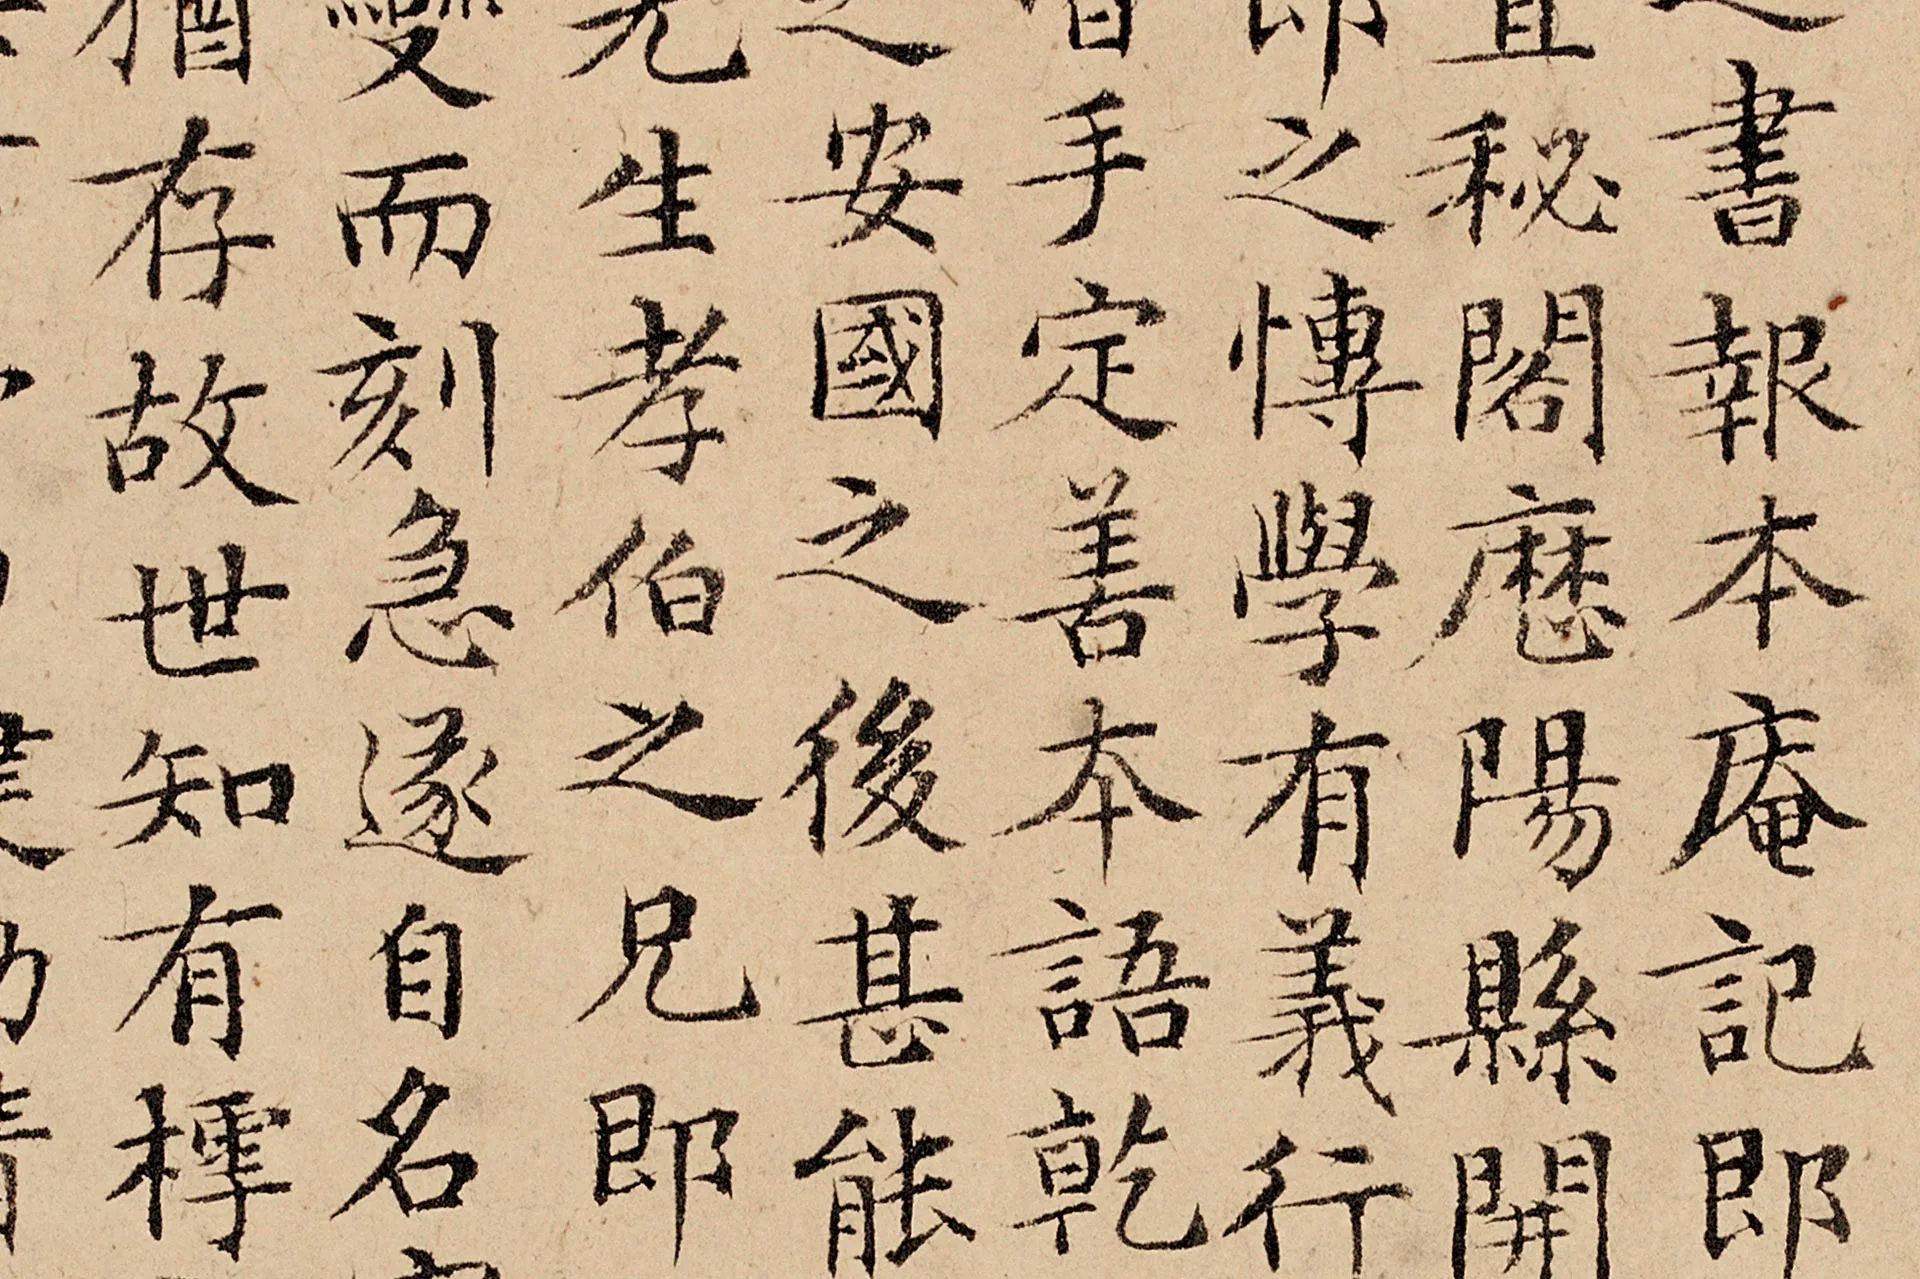 之書報本庵記即
直秘閣歴陽縣開
即之愽學有義行
手定善本語乾
之安國之後甚能
先生孝伯之兄即
變而刻急遂自名
猶存故世知有樗